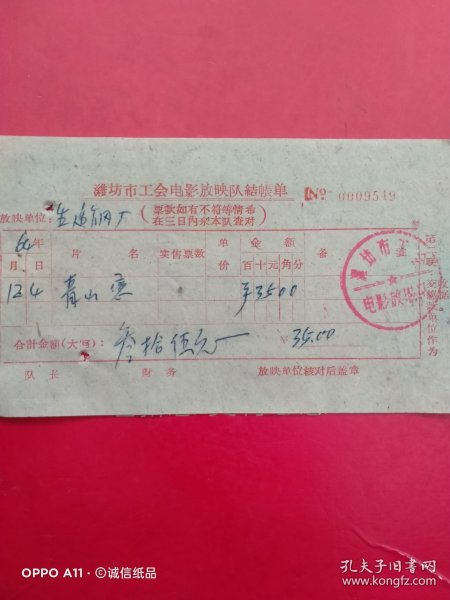 濰坊市工会电影放映队結帳单
№ 0009549
放映单位：
（票款如有不符等情希
在三日内来本队查对）
64年
月 日 片 名 卖售票数 单价 金額 百十元角分 备
12 4 青山恋 ¥3500
合計金額（大写）：叁拾伍元 ¥ 35.00
队长 財务 放映单位核对后盖章
濰坊市工
电影放映队
OPPO A11 · ©诚信纸品
孔夫子旧书网
www.kongfz.com